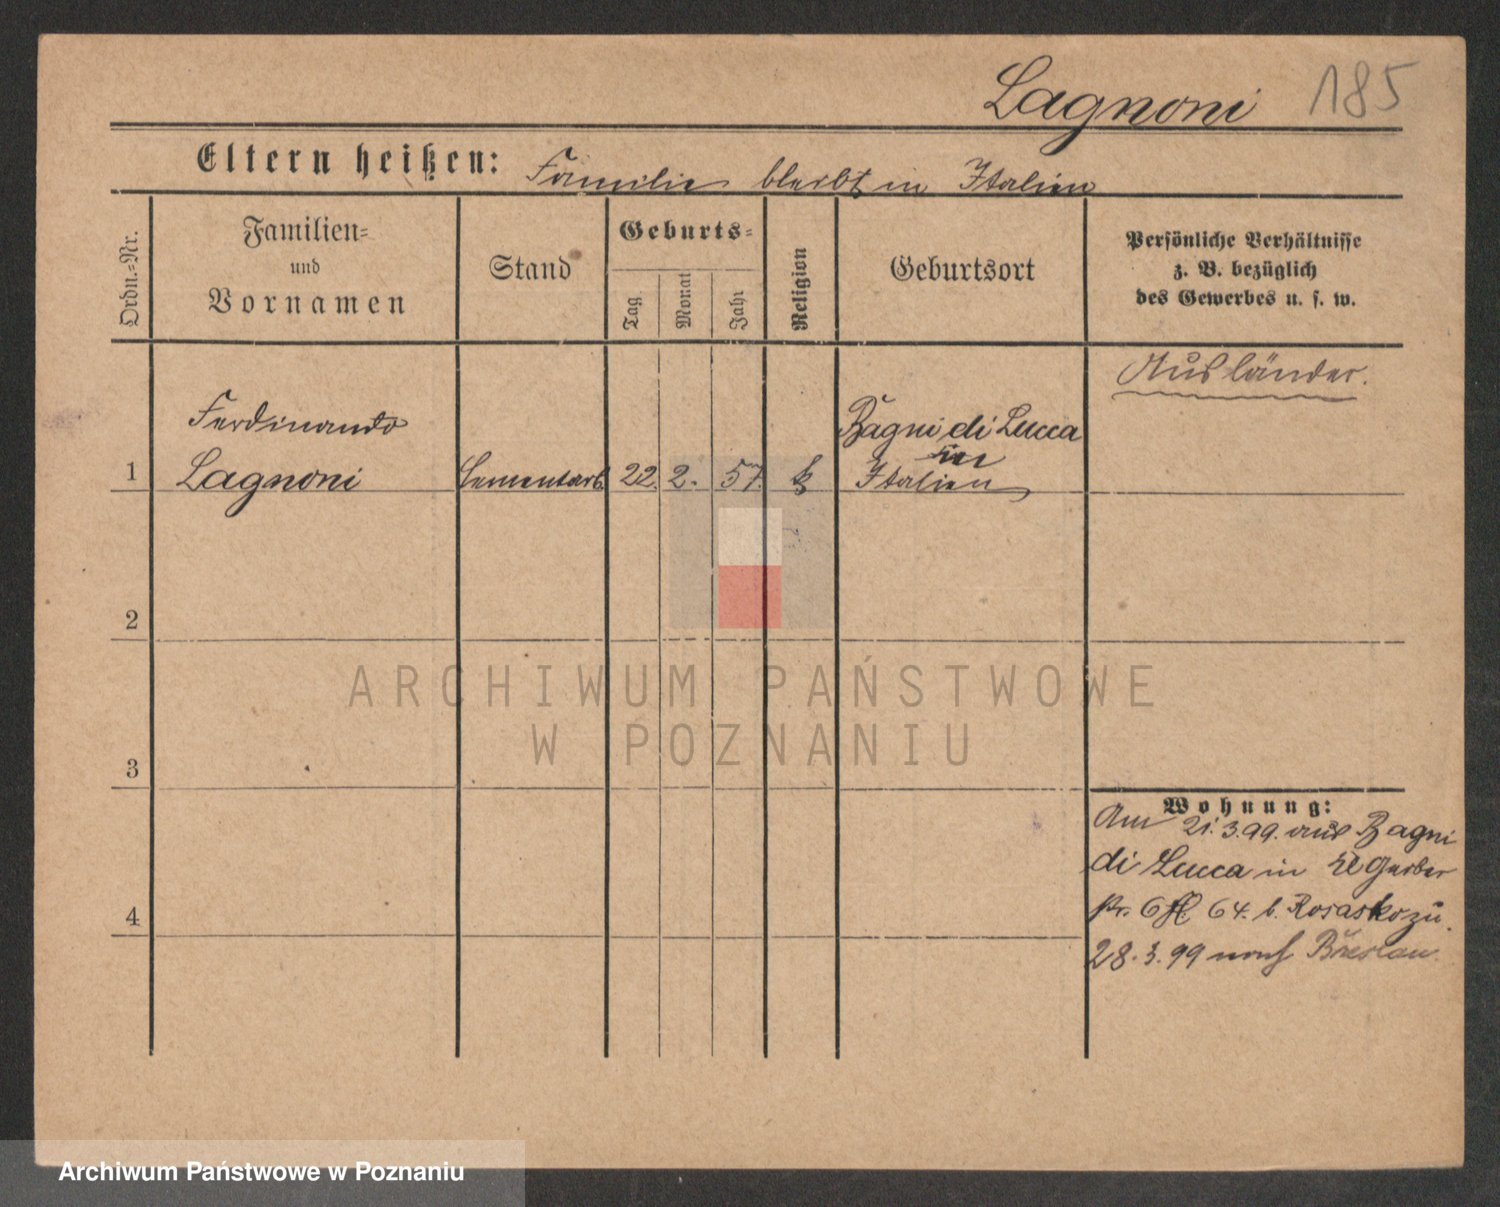 Lagnoni 185
Eltern heißen: Familie bleibt in Italien
Ordn.=Nr.
Familien=
und
Vornamen
Stand
Geburts=
Tag
Monat
Jahr
Religion
Geburtsort
Persönliche Verhältnisse
z. B. bezüglich
des Gewerbes u. s. w.
Ausländer.
Ferdinando
Bagni di Lucca
in
1 Lagnoni Cementarb. 22. 2. 57. k Italien
2
ARCHIWUM PAŃSTWOWE
W POZNANIU
3
Wohnung:
Am 21.3.99. aus Bagni
di Lucca in Gerber
64. b. Rosasko zu.
4
28.3.99 nach Breslau.
Archiwum Państwowe w Poznaniu